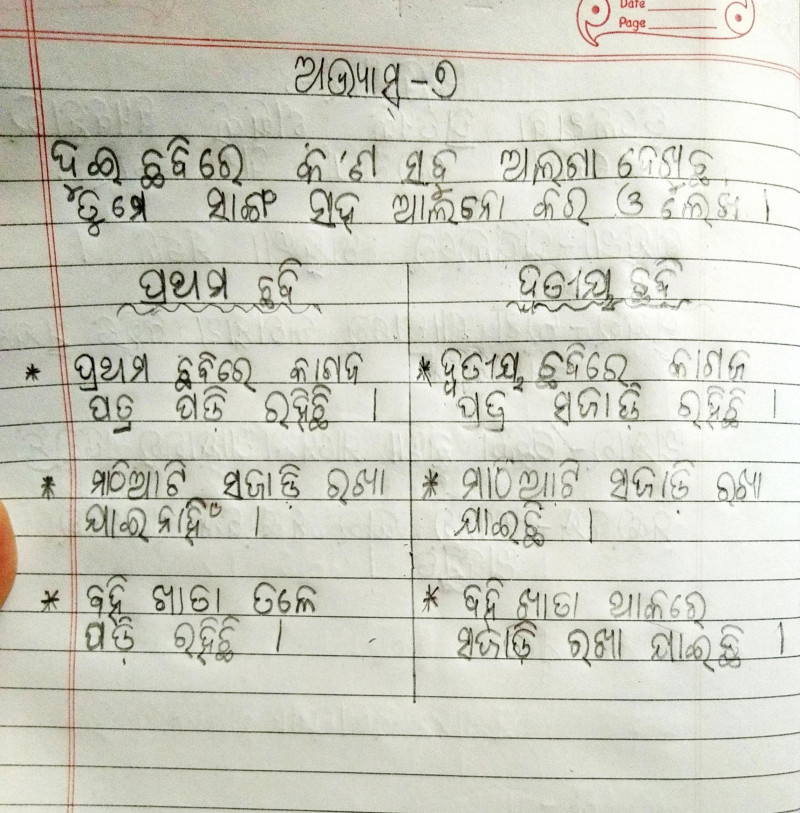 Date
Page
ଅଭ୍ୟାସ - ୨
ଦୁଇ ଛବିରେ କ'ଣ ସବୁ ଅଲଗା ଦେଖୁଛ
ତୁମ ସାଙ୍ଗ ସହ ଆଲୋଚନା କର ଓ ଲେଖ ।
ପ୍ରଥମ ଛବି
* ପ୍ରଥମ ଛବିରେ କାଗଜ
ପତ୍ର ପଡ଼ି ରହିଛି ।
* ମାଠିଆଟି ସଜାଡ଼ି ରଖା
ଯାଇନାହିଁ ।
* ବହି ଖାତା ତଳେ
ପଡ଼ି ରହିଛି ।
ଦ୍ୱିତୀୟ ଛବି
* ଦ୍ୱିତୀୟ ଛବିରେ କାଗଜ
ପତ୍ର ସଜାଡ଼ି ରହିଛି ।
* ମାଠିଆଟି ସଜାଡ଼ି ରଖା
ଯାଇଛି ।
* ବହି ଖାତା ଥାକରେ
ସଜାଡ଼ି ରଖା ଯାଇଛି ।